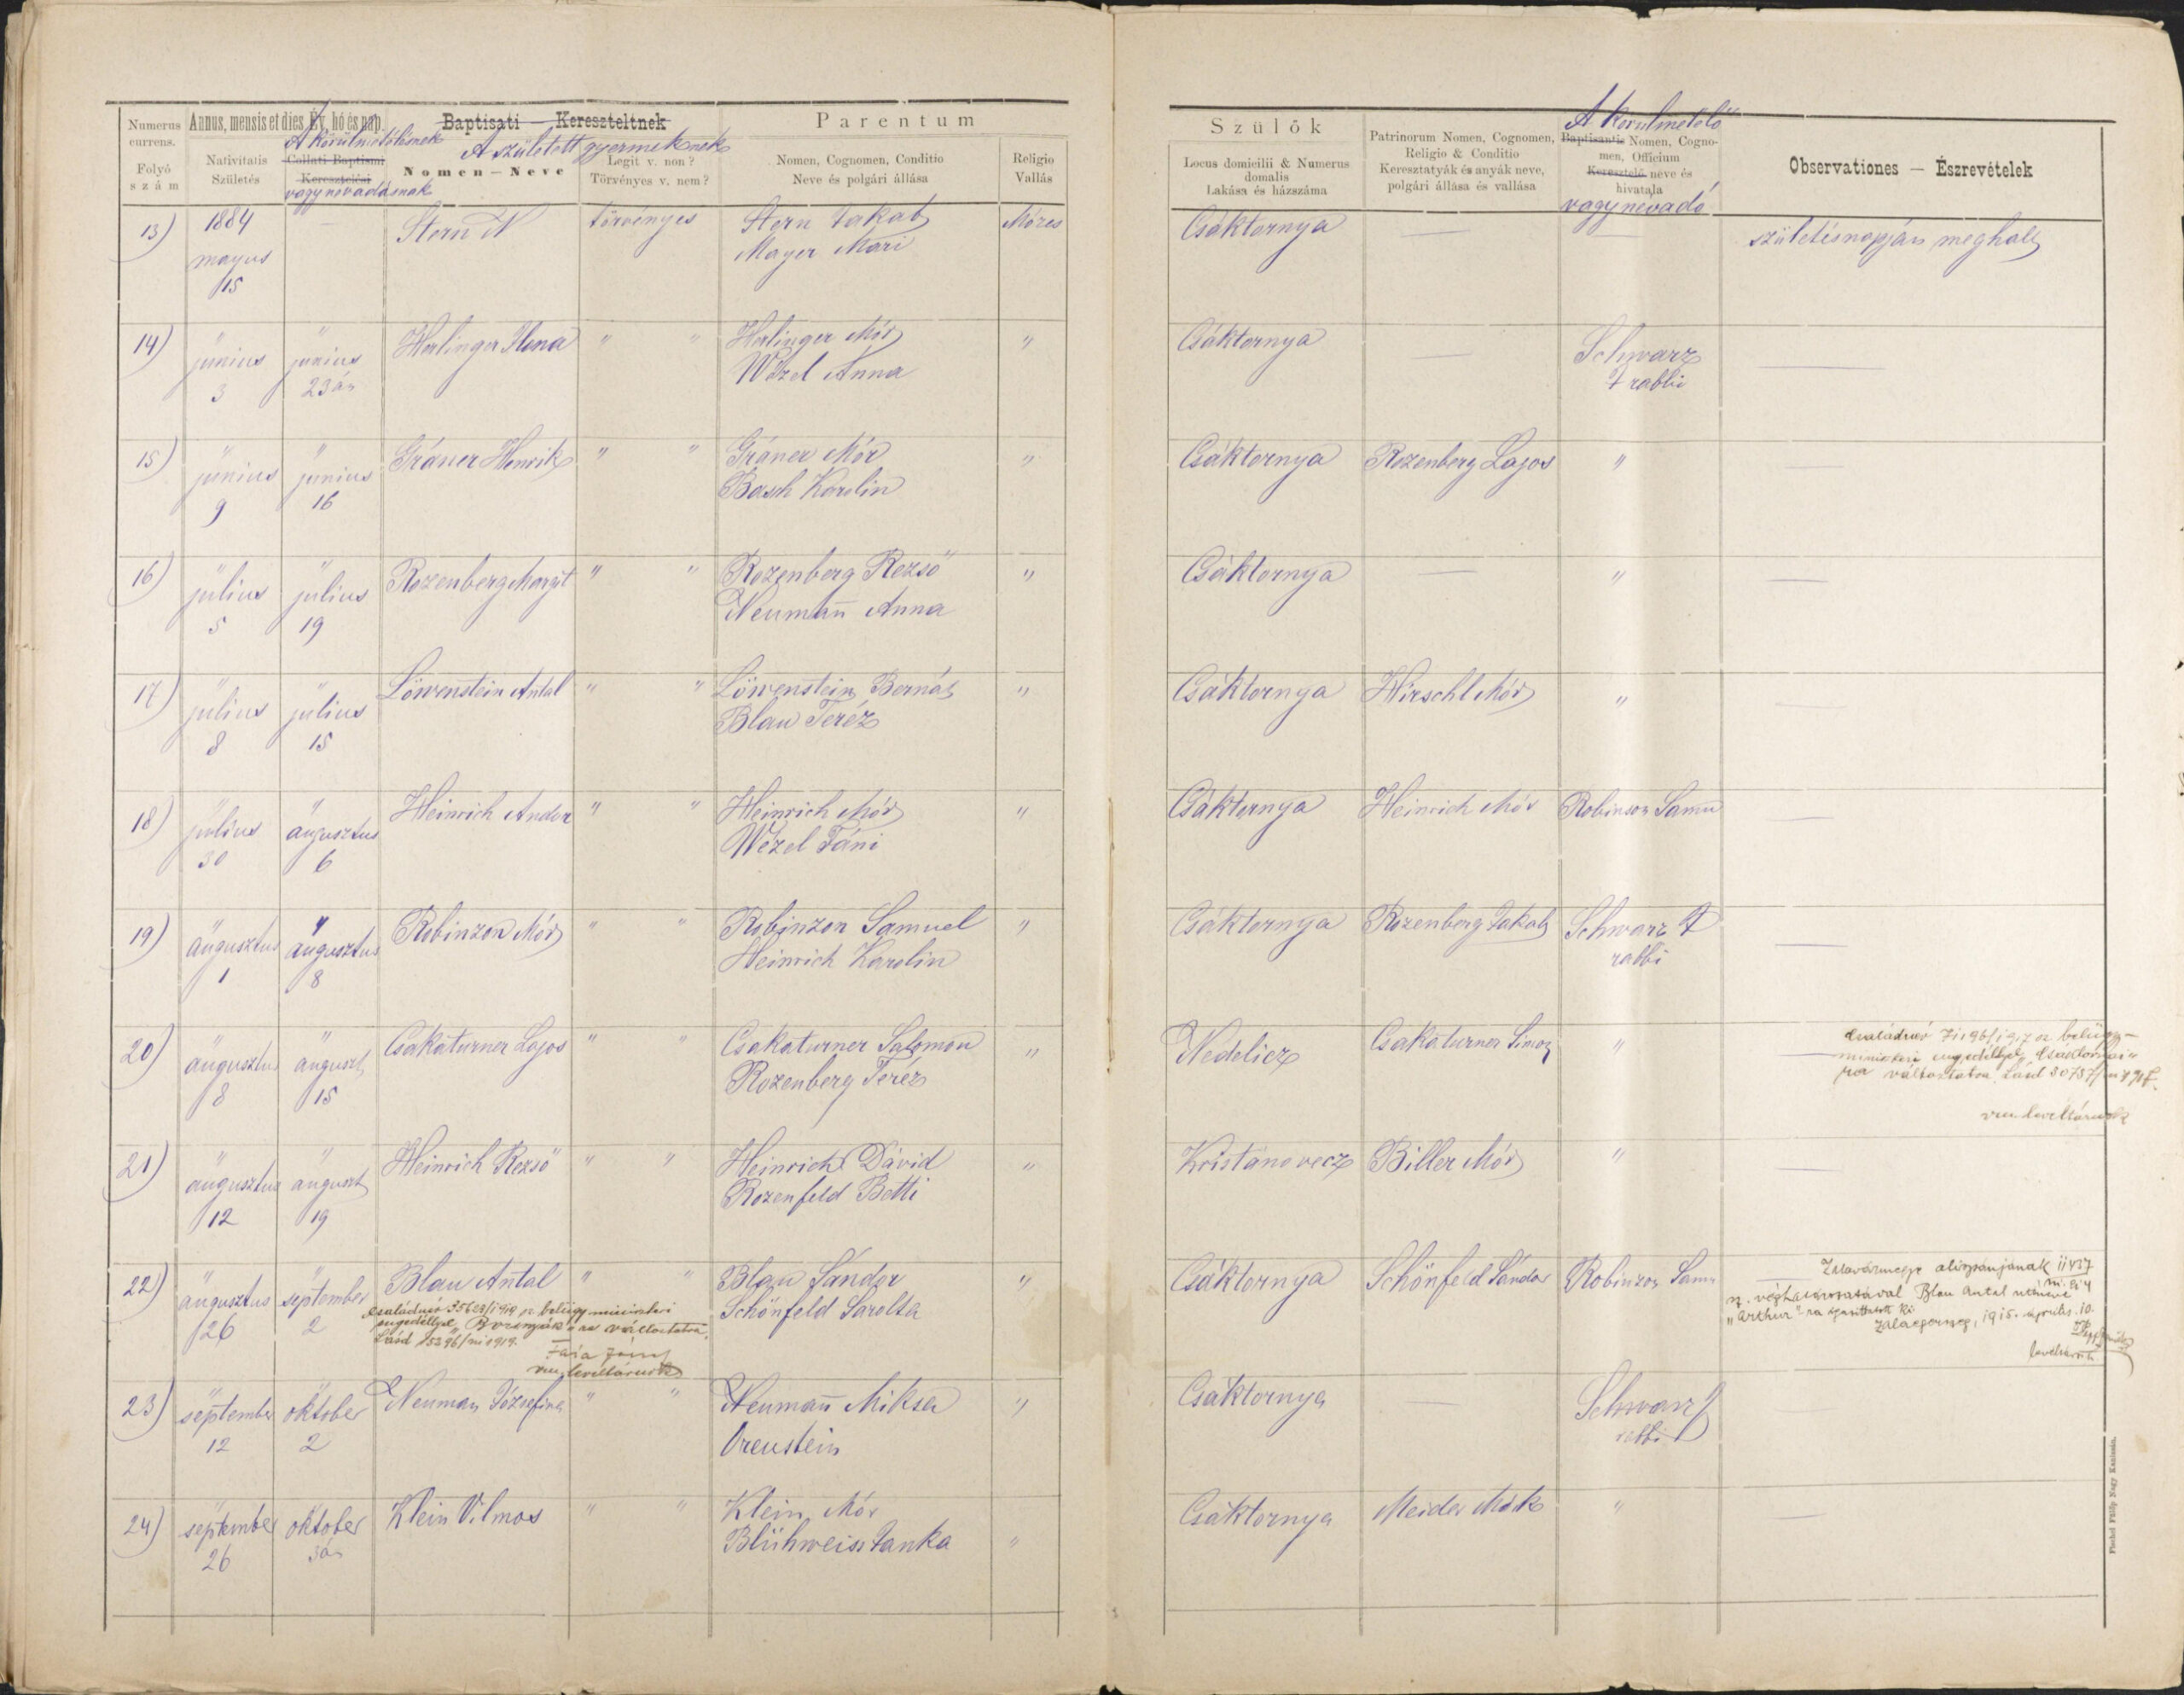 Numerus currens.
Folyó szám
Annus, mensis et dies. Év, hó és nap
Nativitatis
Születés
A körülmetélésnek
Collati Baptismi
Keresztelési
vagy névadásnak
Baptisati — Kereszteltnek
A született gyermeknek
Nomen — Neve
Legit v. non?
Törvényes v. nem?
Parentum
Nomen, Cognomen, Conditio
Neve és polgári állása
Religio
Vallás
Szülők
Locus domicilii & Numerus
domalis
Lakása és házszáma
Patrinorum Nomen, Cognomen,
Religio & Conditio
Keresztatyák és anyák neve,
polgári állása és vallása
A körülmetélő
Baptisantis Nomen, Cogno-
men, Officium
Keresztelő neve és
hivatala
vagy névadó
Observationes — Észrevételek
13) 1884 május 15 — Stern N törvényes Stern Jakab Mózes Csáktornya — — születésnapján meghalt
Mayer Mari
14) " június 3 " június 23án Herlinger Ilona " " Herlinger Mór " Csáktornya — Schwarz J rabbi —
Wézel Anna
15) " június 9 " június 16 Gráner Henrik " " Gráner Mór " Csáktornya Rozenberg Lajos " —
Basch Karolin
16) " július 5 " július 19 Rozenberg Margit " " Rozenberg Rezső " Csáktornya — " —
Neuman̄ Anna
17) " július 8 " július 15 Löwenstein Antal " " Löwenstein Bernát " Csáktornya Hirschl Mór " —
Blau Teréz
18) " július 30 " augusztus 6 Heinrich Andor " " Heinrich Mór " Csáktornya Heinrich Mór Robinson Samu —
Wézel Fáni
19) " augusztus 1 " augusztus 8 Robinzon Mór " " Robinzon Samuel " Csáktornya Rozenberg Jakab Schwarz J rabbi —
Heinrich Karolin
20) " augusztus 8 " auguszt. 15 Csakaturner Lajos " " Csakaturner Salomon " Nedelicz Csakaturner Simon " —
Rozenberg Teréz
Családnév 71196/1917 sz. belügy-
miniszteri engedéllyel "Csáktornyai"-
ra változtatva. Lásd 30757/ni 1917.
vm. levéltárnok
21) " augusztus 12 " auguszt 19 Heinrich Rezső " " Heinrich Dávid " Kristánovecz Biller Mór " —
Rozenfeld Betti
22) " augusztus 26 " september 2 Blau Antal " " Blau Sándor " Csáktornya Schönfeld Sándor Robinzon Samu —
Schönfeld Sarolta
Családnév 35623/1919 sz. belügyminiszteri
engedéllyel "ra változtatva.
Lásd 15296/ni 1919.
vm. levéltárnok
Zalavármegye alispánjának 11437
ni. 914
sz. véghatározatával Blau Antal utóneve
"Arthur"-ra igazíttatott ki.
Zalaegerszeg, 1915. április. 10.
levéltárnok
23) " september 12 " október 2 Neuman Józsefina " " Neuman̄ Miksa " Csáktornya — Schwarz J rabbi —
Orenstein
24) " september 26 " október 3án Klein Vilmos " " Klein Mór Csáktornya Meider Márk " —
Blühweiss Janka "
Fischel Fülöp Nagy Kanizsán.